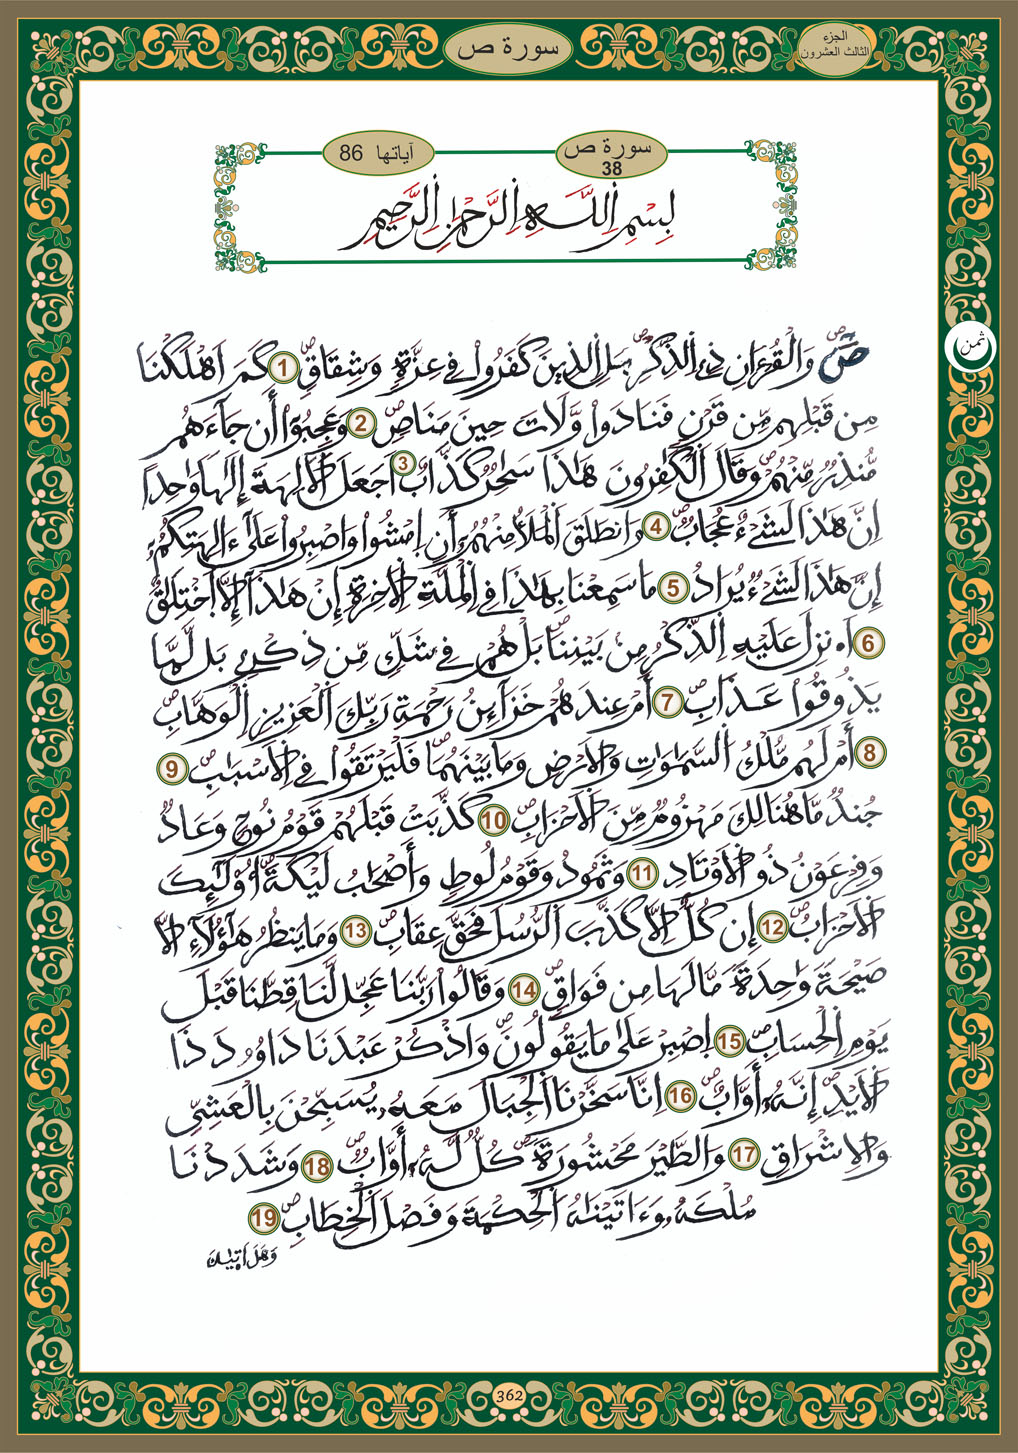 الجزء
الثالث العشرون
سورة ص
سورة ص
38
آياتها 86
بِسْمِ اِ۬للَّهِ اِ۬لرَّحْمَٰنِ اِ۬لرَّحِيمِ
ثمن
صَٓ وَالْقُرْءَانِ ذِے اِ۬لذِّكْرِ بَلِ اِ۬لذِينَ كَفَرُواْ فِے عِزَّةٖ وَشِقَاقٖ 1 كَمَ اَهْلَكْنَا
مِن قَبْلِهِم مِّن قَرْنٖ فَنَادَواْ وَّلَاتَ حِينَ مَنَاصٖ 2 وَعَجِبُوٓاْ أَن جَآءَهُم
مُّنذِرٞ مِّنْهُمْ وَقَالَ اَ۬لْكَٰفِرُونَ هَٰذَا سَٰحِرٞ كَذَّابٌ 3 اَجَعَلَ اَ۬لَالِهَةَ إِلَٰهاٗ وَٰحِداً
اِنَّ هَٰذَا لَشَےْءٌ عُجَابٞ 4 وَانطَلَقَ اَ۬لْمَلَأُ مِنْهُمُۥٓ أَنِ اِ۪مْشُواْ وَاصْبِرُواْ عَلَىٰٓ ءَالِهَتِكُمُۥٓ
إِنَّ هَٰذَا لَشَےْءٞ يُرَادُ 5 مَا سَمِعْنَا بِهَٰذَا فِے اِ۬لْمِلَّةِ اِ۬لَاخِرَةِ إِنْ هَٰذَآ إِلَّا اَ۪خْتِلَٰقٌ
6 اَ۟ءُنزِلَ عَلَيْهِ اِ۬لذِّكْرُ مِنۢ بَيْنِنَا بَلْ هُمْ فِے شَكّٖ مِّن ذِكْرِے بَل لَّمَّا
يَذُوقُواْ عَذَابِ 7 أَمْ عِندَهُمْ خَزَآئِنُ رَحْمَةِ رَبِّكَ اَ۬لْعَزِيزِ اِ۬لْوَهَّابِ
8 أَمْ لَهُم مُّلْكُ اُ۬لسَّمَٰوَٰتِ وَالَارْضِ وَمَا بَيْنَهُمَا فَلْيَرْتَقُواْ فِے اِ۬لَاسْبَٰبِ 9
جُندٞ مَّا هُنَالِكَ مَهْزُومٞ مِّنَ اَ۬لَاحْزَابِ 10 كَذَّبَتْ قَبْلَهُمْ قَوْمُ نُوحٖ وَعَادٞ
وَفِرْعَوْنُ ذُو اُ۬لَاوْتَادِ 11 وَثَمُودُ وَقَوْمُ لُوطٖ وَأَصْحَٰبُ لَيْكَةَ أُوْلَٰٓئِكَ
اَ۬لَاحْزَابُ 12 إِن كُلٌّ اِلَّا كَذَّبَ اَ۬لرُّسُلَ فَحَقَّ عِقَابِ 13 وَمَا يَنظُرُ هَٰٓؤُلَآءِ الَّا
صَيْحَةٗ وَٰحِدَةٗ مَّا لَهَا مِن فَوَاقٖ 14 وَقَالُواْ رَبَّنَا عَجِّل لَّنَا قِطَّنَا قَبْلَ
يَوْمِ اِ۬لْحِسَابِ 15 اِصْبِرْ عَلَىٰ مَا يَقُولُونَ وَاذْكُرْ عَبْدَنَا دَاوُۥدَ ذَا
اَ۬لَايْدِ إِنَّهُۥٓ أَوَّابٌ 16 اِنَّا سَخَّرْنَا اَ۬لْجِبَالَ مَعَهُۥ يُسَبِّحْنَ بِالْعَشِيِّ
وَالِاشْرَاقِ 17 وَالطَّيْرَ مَحْشُورَةٗ كُلّٞ لَّهُۥٓ أَوَّابٞ 18 وَشَدَدْنَا
مُلْكَهُۥ وَءَاتَيْنَٰهُ اُ۬لْحِكْمَةَ وَفَصْلَ اَ۬لْخِطَابِ 19
وَهَلَ اَتَيٰكَ
362